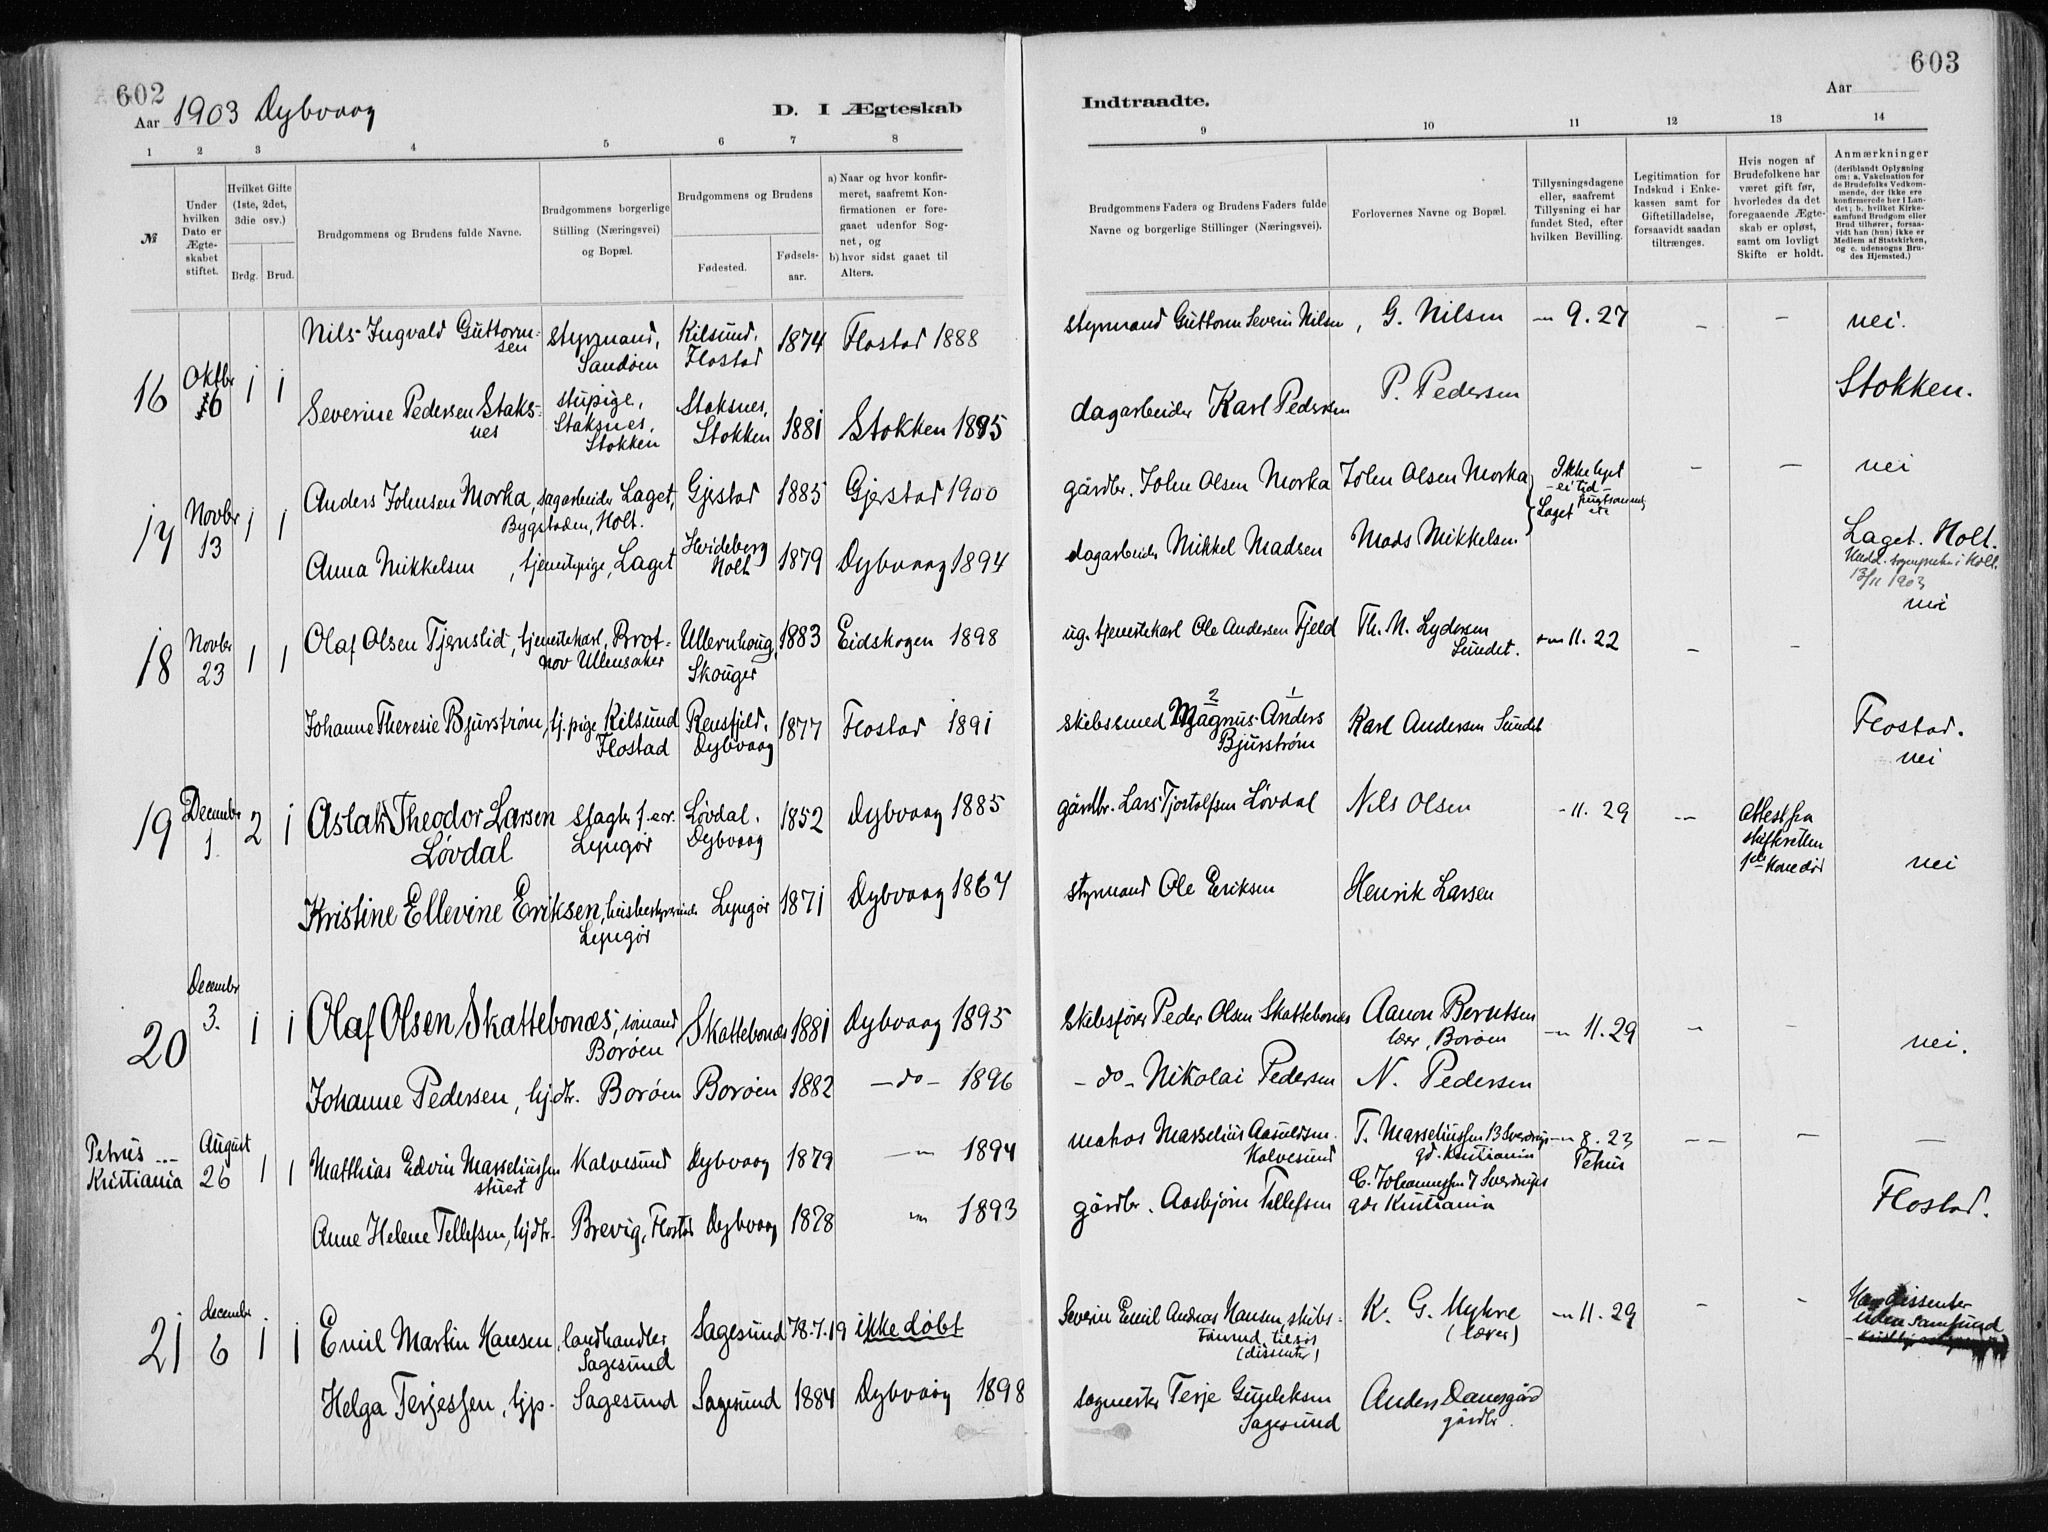 602
Aar 1903 Dybvaag
D. I Ægteskab
1 2 3 4 5 6 7 8
№
Under hvilken Dato er Ægteskabet stiftet.
Hvilket Gifte (1ste, 2det, 3die osv.)
Brdg. Brud.
Brudgommens og Brudens fulde Navne.
Brudgommens borgerlige Stilling (Næringsvei) og Bopæl.
Brudgommens og Brudens
Fødested. Fødselsaar.
a) Naar og hvor konfirmeret, saafremt Konfirmationen er foregaaet udenfor Sognet, og
b) hvor sidst gaaet til Alters.
16 Oktbr 16 1 1
Nils Ingvald Guttormsen styrmand, Sandøen Kilsund, Flostad 1874 Flostad 1888
Severine Pedersen Staksnes stupige, Staksnes, Stokken Staksnes, Stokken 1881 Stokken 1895
17 Novbr 13 1 1
Anders Johnsen Morka, dagarbeider Laget, Bygstaden, Holt. Gjestad 1885 Gjerstad 1900
Anna Mikkelsen, tjenestepige, Laget Hvideberg Holt 1879 Dybvaag 1894
18 Novbr 23 1 1
Olaf Olsen Tjernslid, tjenestekarl, Brotnov Ullensaker Ullernhoug, Skouger 1883 Eidskogen 1898
Johanne Theresie Bjurstrøm, tj. pige Kilsund Flostad Rensfjeld, Dybvaag 1877 Flostad 1891
19 December 1. 2 1
Aslak Theodor Larsen Løvdal slagter f. err. Lyngør Løvdal, Dybvaag 1852 Dybvaag 1885
Kristine Ellevine Eriksen, husbestyrerinde Lyngør Lyngør 1871 Dybvaag 1867
20 December 3. 1 1
Olaf Olsen Skattebonæs, sømand Borøen Skattebonæs 1881 Dybvaag 1895
Johanne Pedersen, hjdtr. Borøen Borøen 1882 - do - 1896
Petrus Kristiania August 26 1 1
Matthias Edvin Marseliussen stuert Kalvesund Dybvaag 1879 - " - 1894
Anne Helene Tellefsen, hjdtr. Brevig, Flostad Dybvaag 1878 " 1893
21 december 6 1 1
Emil Martin Hansen, landhandler Sagesund Sagesund 78.7.19 ikke døbt
Helga Terjessen, hjp. Sagesund Sagesund 1884 Dybvaag 1898
603
Aar
Indtraadte.
9 10 11 12 13 14
Brudgommens Faders og Brudens Faders fulde Navne og borgerlige Stillinger (Næringsvei).
Forlovernes Navne og Bopæl.
Tillysningsdagene eller, saafremt Tillysning ei har fundet Sted, efter hvilken Bevilling.
Legitimation for Indskud i Enkekassen samt for Giftetilladelse, forsaavidt saadan tiltrænges.
Hvis nogen af Brudefolkene har været gift før, hvorledes da det foregaaende Ægteskab er opløst, samt om lovligt Skifte er holdt.
Anmærkninger
(deriblandt Oplysning om: a. Vakcination for de Brudefolks Vedkommende, der ikke ere konfirmerede her i Landet; b. hvilket Kirkesamfund Brudgom eller Brud tilhører, forsaavidt han (hun) ikke er Medlem af Statskirken, og c. udensogns Brudes Hjemsted.)
styrmand Guttorm Severin Nilsen, G. Nilsen - " 9. 27 - - nei.
dagarbeider Karl Pedersen P. Pedersen Stokken.
gårdbr. John Olsen Morka John Olsen Morka Ikke lyst - ei tid - Laget etc - - nei
dagarbeider Mikkel Madsen Mads Mikkelsen Laget. Holt.
13/11 1903
nei
ug. tjenestekarl Ole Andersen Fjeld Th. M. Lydersen Sundet. - " 11. 22 - -
skibssmed Magnus 2 Anders 1 Bjurstrøm Karl Andersen Sundet Flostad.
nei
gårdbr. Lars Tjostolfsen Løvdal Nils Olsen - 11. 29 - - Attest fra skifteretten 1ste Kone død nei
styrmand Ole Eriksen Henrik Larsen
skibsfører Peder Olsen Skattebonæs Aanon Berntsen lærer, Borøen - " 11. 29 - - nei.
- do - Nikolai Pedersen N. Pedersen
matros Marselius Aasuldsen Kalvesund T. Marseliussen 13 Sverdrups gd. Kristiania - " 8. 23 Petrus - - - -
gårdbr. Aasbjørn Tellefsen C. Johannessen 7 Sverdrups gde Kristiania Flostad.
Severin Emil Andreas Hansen, skibstømmd. tilsøs (dissenter) K. G. Myhre (lærer) - " 11. 29 - - Han dissenter uden samfund
sagmester Terje Gunleksen Sagesund Anders Danesgård gårdbr.